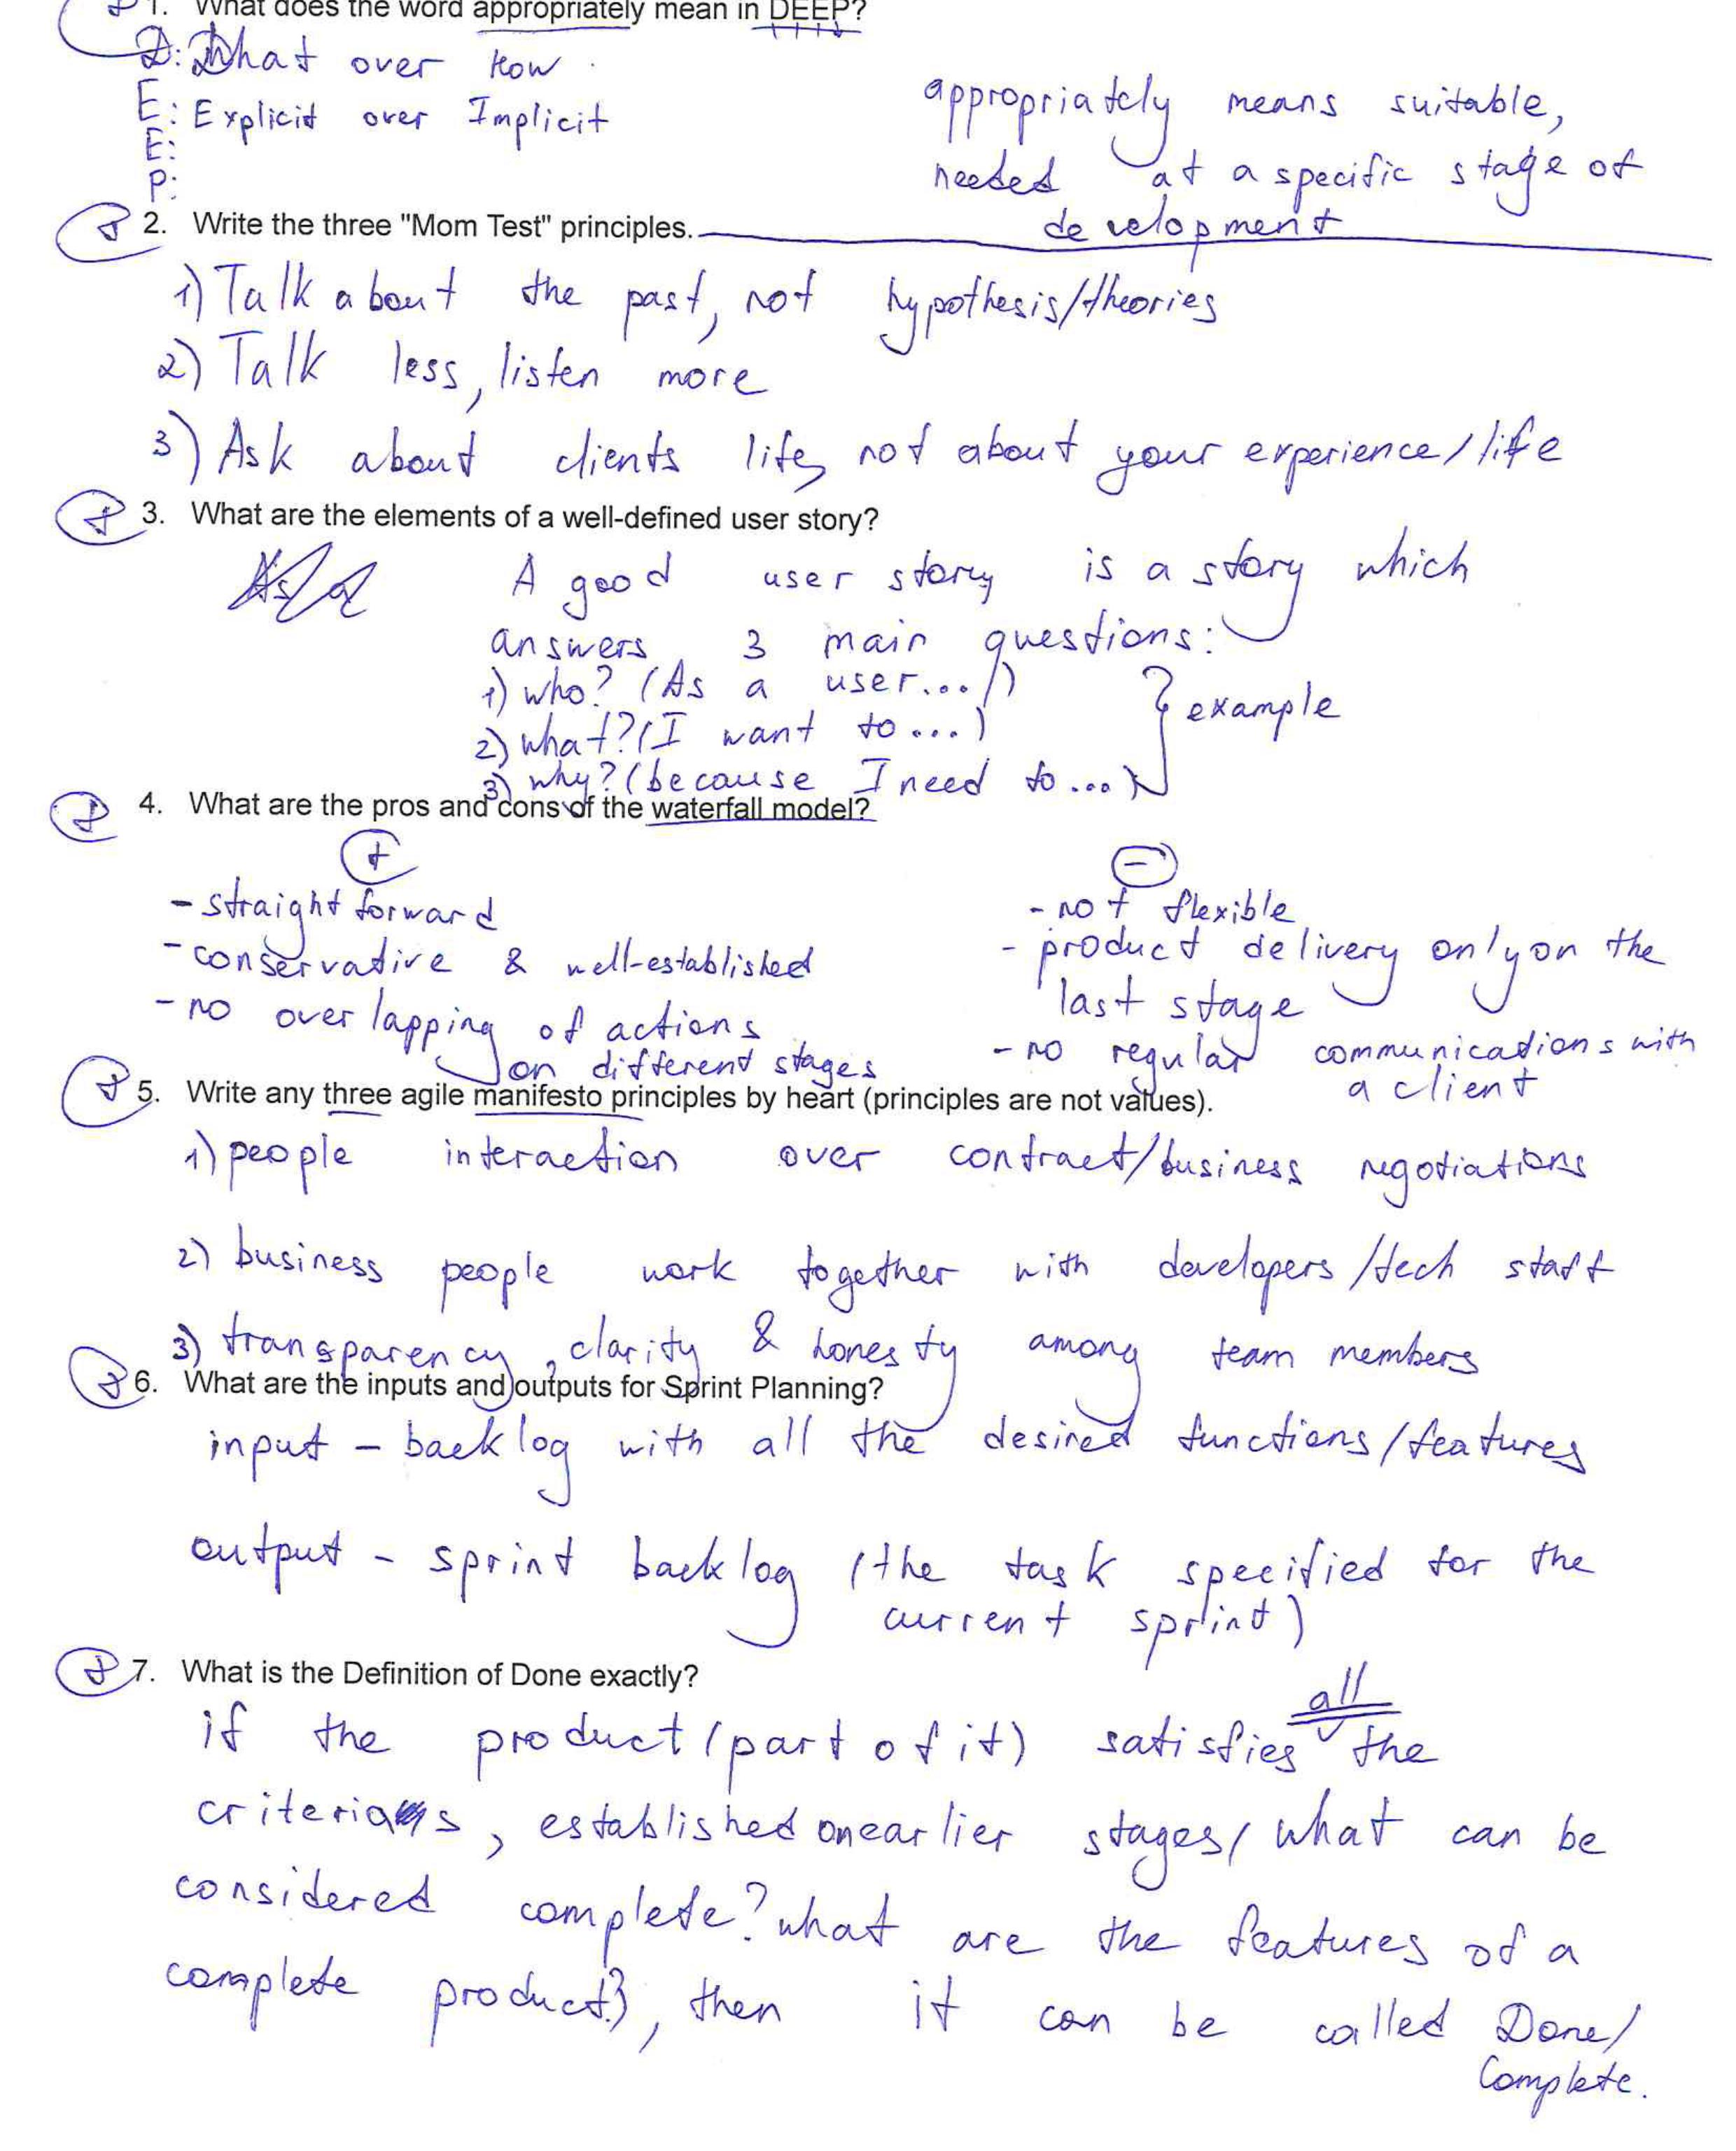 1. What does the word appropriately mean in DEEP?
D: What over How
E: Explicit over Implicit
E:
P:
appropriately means suitable,
needed at a specific stage of
development
2. Write the three "Mom Test" principles.
1) Talk about the past, not hypothesis/theories
2) Talk less, listen more
3) Ask about clients life, not about your experience/life
3. What are the elements of a well-defined user story?
A good user story is a story which
answers 3 main questions:
1) who? (As a user...)
2) what? (I want to...)
3) why? (because I need to...)
} example
4. What are the pros and cons of the waterfall model?
+
- straight forward
- conservative & well-established
- no overlapping of actions
on different stages
-
- not flexible
- product delivery only on the
last stage
- no regular communications with
a client
5. Write any three agile manifesto principles by heart (principles are not values).
1) people interaction over contract/business negotiations
2) business people work together with developers/tech staff
3) transparency, clarity & honesty among team members
6. What are the inputs and outputs for Sprint Planning?
input - backlog with all the desired functions/features
output - sprint backlog (the task specified for the
current sprint)
7. What is the Definition of Done exactly?
if the product (part of it) satisfies all the
criterias, established on earlier stages (what can be
considered complete? what are the features of a
complete product?), then it can be called Done/
Complete.